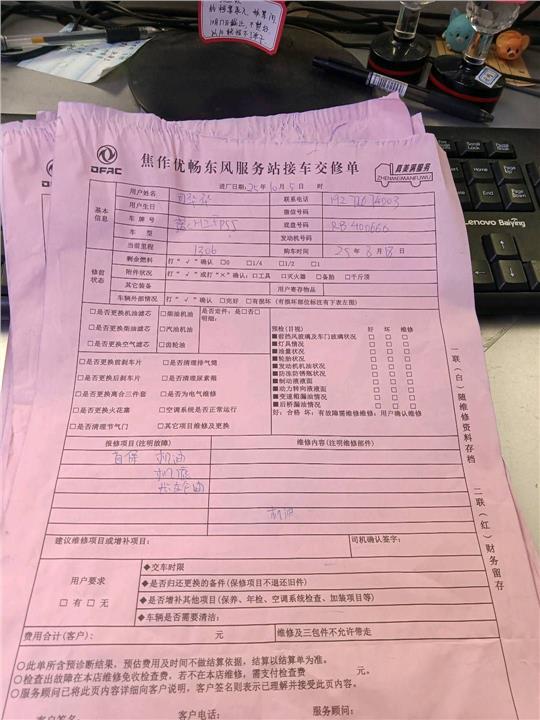 DFAC
焦作优畅东风服务站接车交修单
真美满服务
ZHENMEIMANFUWU
进厂日期:25年10月5日 时
基本信息
用户姓名
联系电话
用户生日
微信号码
车牌号
H25P55
底盘号码
车型
发动机号码
当前里程 1306
购车时间 25年8月18日
修前状态
剩余燃料 打“√”确认 □0 □1/4 □1/2 □1
附件状况 打“√”或打“×”确认:□工具 □灭火器 □备胎 □千斤顶
其它装备
用户寄存物品
车辆外部情况 打“√”确认 □完好 □有损坏(有损坏部位标注有下表左图)
□是否更换机油滤芯 □柴油机油
□是否更换柴油滤芯 □汽油机油
□是否更换空气滤芯 □齿轮油
是否定件:是□否□
明细:
□是否更换前刹车片 □是否清理排气筒
□是否更换后刹车片 □是否清理尿素箱
□是否更换离合三件套 □是否为电气维修
□是否更换火花塞 □空调系统是否正常运行
□是否清理节气门 □其它项目维修及更换
预检(目视) 好 坏 维修
■前挡风玻璃及车门玻璃状况 □ □ □
■灯具情况 □ □ □
■油量状况 □ □ □
■轮胎状况 □ □ □
■发动机机油状况 □ □ □
■防冻防锈瓶状况 □ □ □
■制动液液面 □ □ □
■动力转向液液面 □ □ □
■变速箱漏油情况 □ □ □
■后桥漏油情况 □ □ □
好:合格 坏:有故障需维修维修:用户确认维修
报修项目(注明故障)
维修内容(注明维修部件)
首保 机油
机滤
齿轮油
机滤
建议维修项目或增补项目:
司机确认签字:
用户要求
□有 □无
◆交车时限
◆是否归还更换的备件(保修项目不退还旧件)
◆是否增补其他项目(保养、年检、空调系统检查、加装项目等)
◆车辆是否需要清洁:
费用合计(客户): 元
维修及三包件不允许带走
○此单所含预诊断结果,预估费用及时间不做结算依据,结算以结算单为准。
○检查出故障在本店维修免收检查费,若不在本店维修,需支付检查费 元。
○服务顾问已将此页内容详细向客户说明,客户签名则表示已理解并接受此页内容。
客户签名: 客户电话: 服务顾问:
一联(白)随维修资料存档
二联(红)财务留存
Lenovo